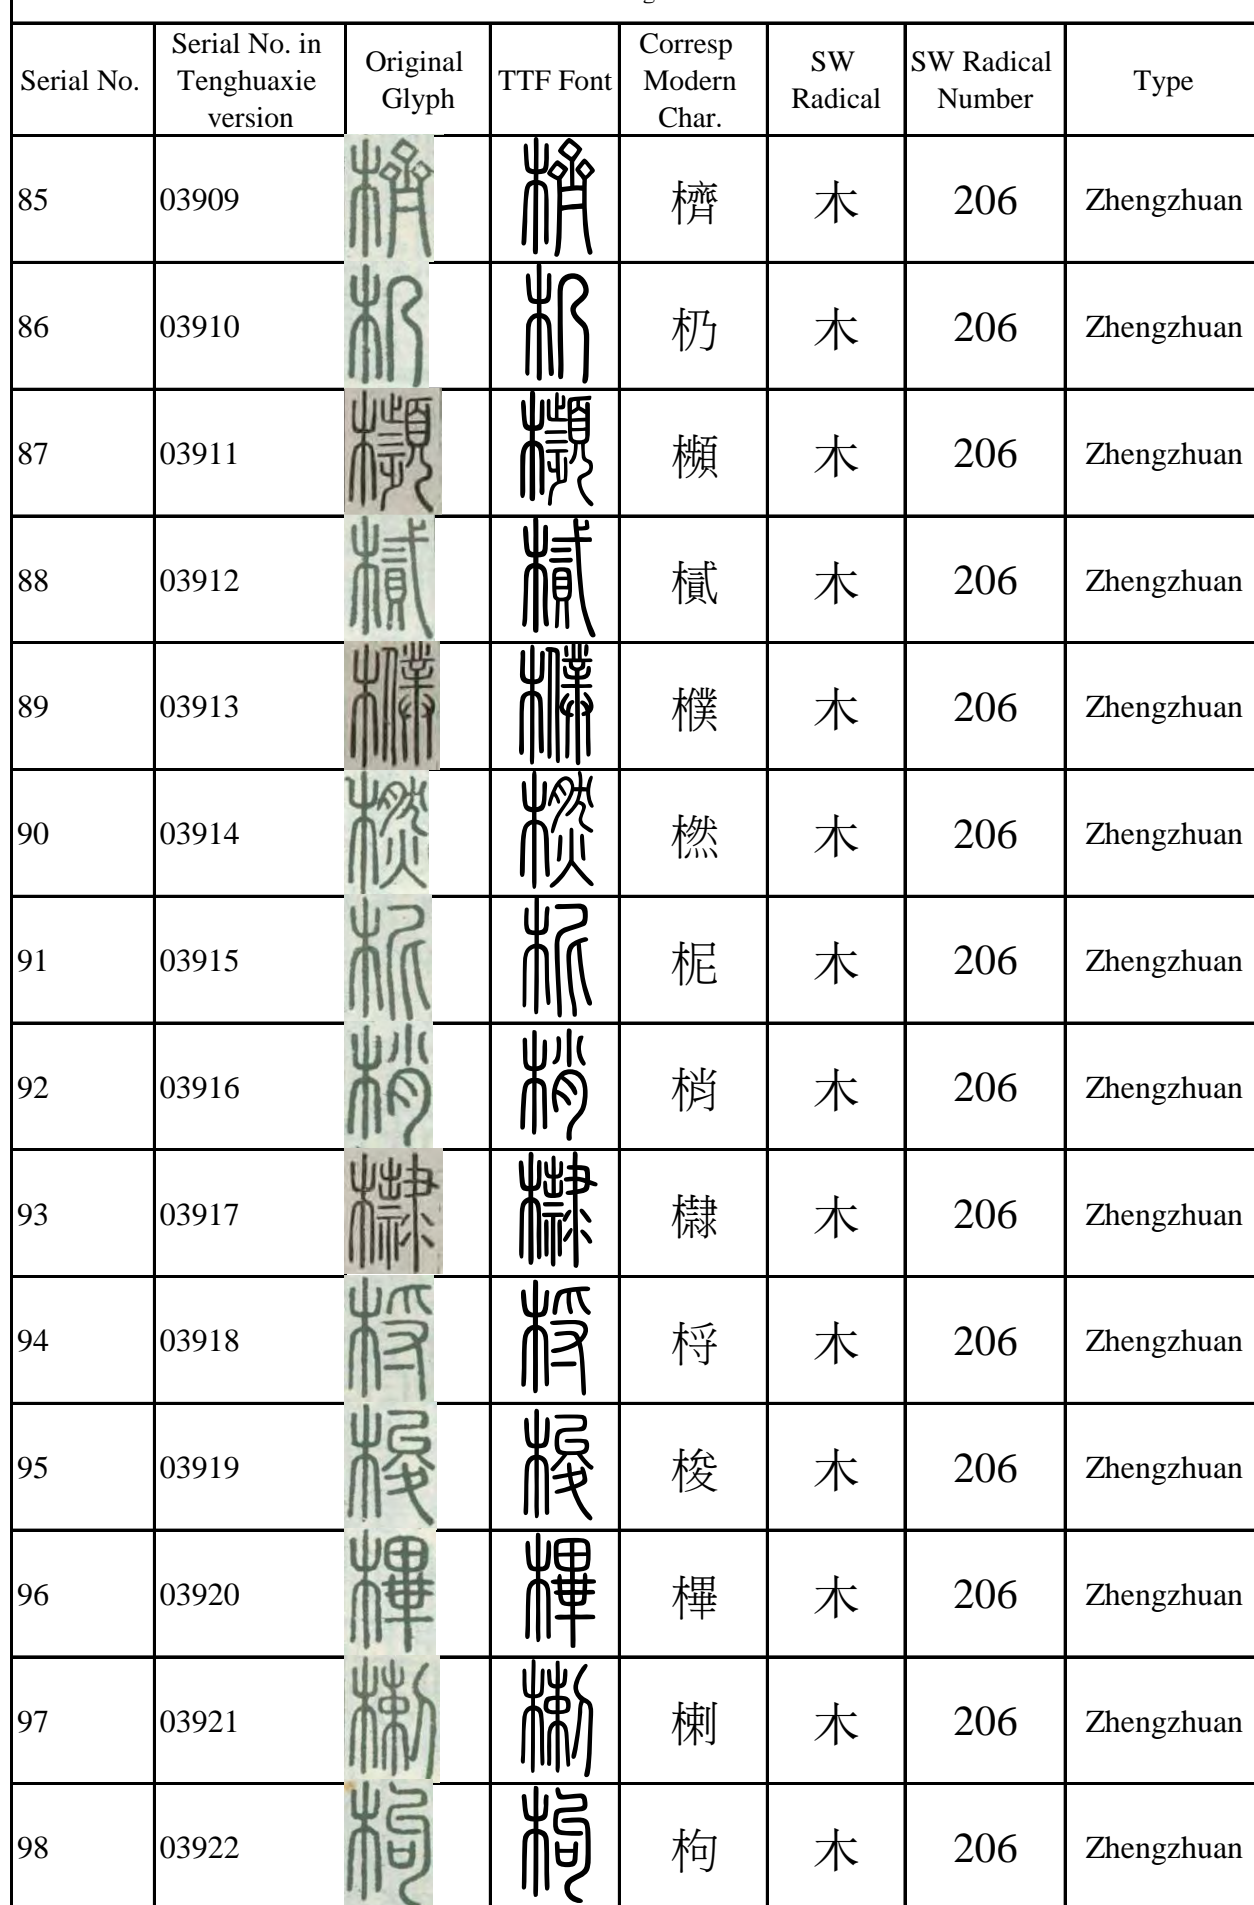 Serial No. Serial No. in Tenghuaxie version Original Glyph TTF Font Corresp Modern Char. SW Radical SW Radical Number Type
85 03909 櫅 木 206 Zhengzhuan
86 03910 杒 木 206 Zhengzhuan
87 03911 櫇 木 206 Zhengzhuan
88 03912 樲 木 206 Zhengzhuan
89 03913 樸 木 206 Zhengzhuan
90 03914 橪 木 206 Zhengzhuan
91 03915 柅 木 206 Zhengzhuan
92 03916 梢 木 206 Zhengzhuan
93 03917 木 206 Zhengzhuan
94 03918 桴 木 206 Zhengzhuan
95 03919 梭 木 206 Zhengzhuan
96 03920 樿 木 206 Zhengzhuan
97 03921 楋 木 206 Zhengzhuan
98 03922 枸 木 206 Zhengzhuan